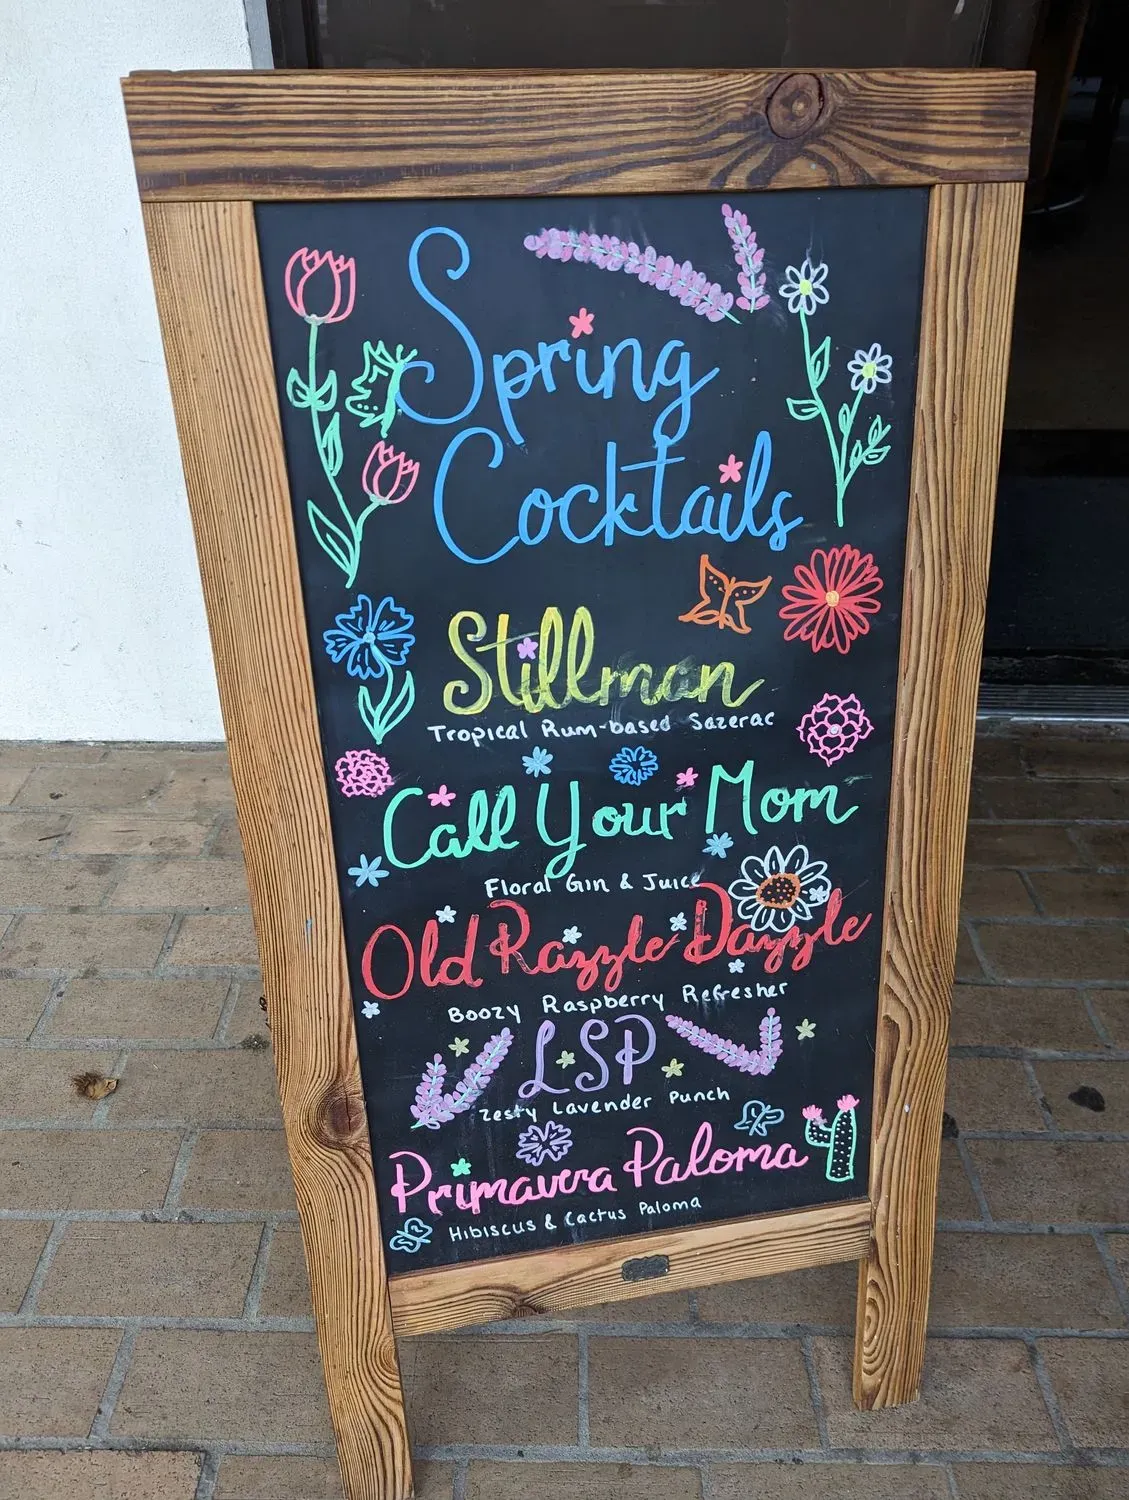 Spring
Cocktails
Stillman
Tropical Rum-based Sazerac
Call Your Mom
Floral Gin & Juice
Old Razzle Dazzle
Boozy Raspberry Refresher
LSP
Zesty Lavender Punch
Primavera Paloma
Hibiscus & Cactus Paloma